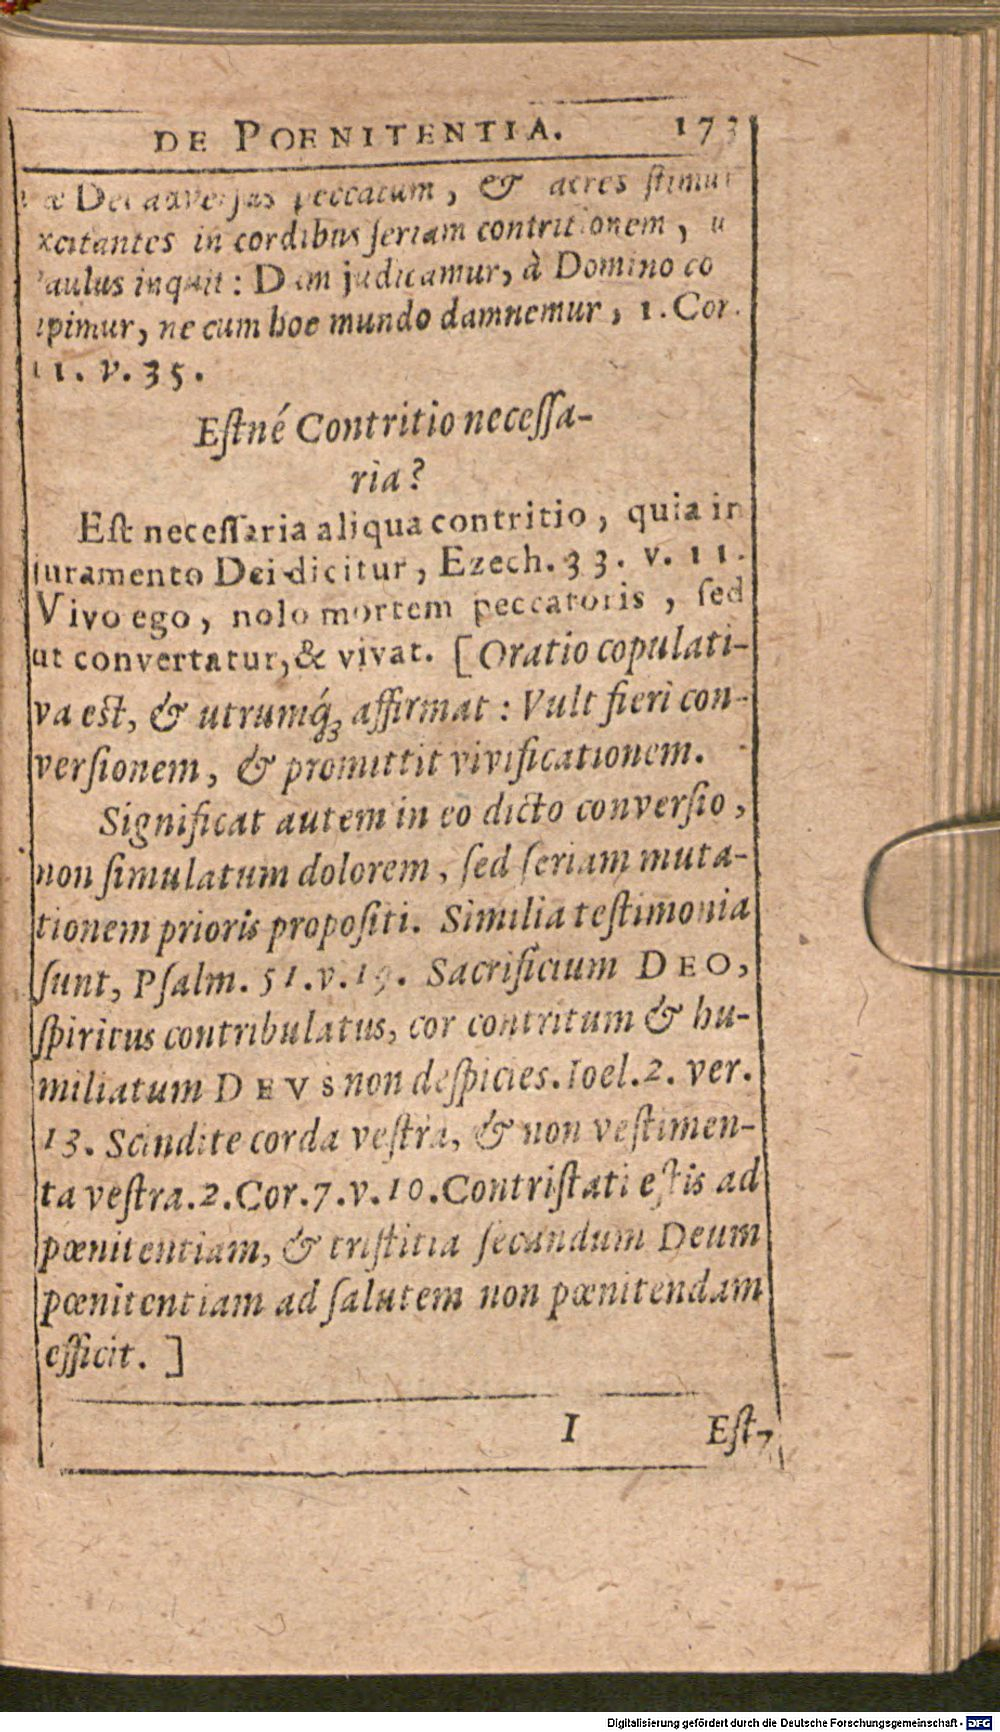 DE POENITENTIA. 173
æ Dei adversus peccatum, & acres stimul
xcitantes in cordibus seriam contritionem, u
aulus inquit: Dum judicamur, à Domino co
ipimur, ne cum hoc mundo damnemur, 1. Cor.
11. v. 35.
Estné Contritio necessa-
ria?
Est necessaria aliqua contritio, quia in
juramento Dei dicitur, Ezech. 33. v. 11.
Vivo ego, nolo mortem peccatoris, sed
ut convertatur, & vivat. [Oratio copulati-
va est, & utrumq́; affirmat: Vult fieri con-
versionem, & promittit vivificationem.
Significat autem in eo dicto conversio,
non simulatum dolorem, sed seriam muta-
tionem prioris propositi. Similia testimonia
sunt, Psalm. 51. v. 19. Sacrificium DEO,
spiritus contribulatus, cor contritum & hu-
miliatum DEVS non despicies. Ioel. 2. ver.
13. Scindite corda vestra, & non vestimen-
ta vestra. 2. Cor. 7. v. 10. Contristati estis ad
pœnitentiam, & tristitia secundum Deum
pœnitentiam ad salutem non pœnitendam
efficit.]
I Est-
Digitalisierung gefördert durch die Deutsche Forschungsgemeinschaft - DFG